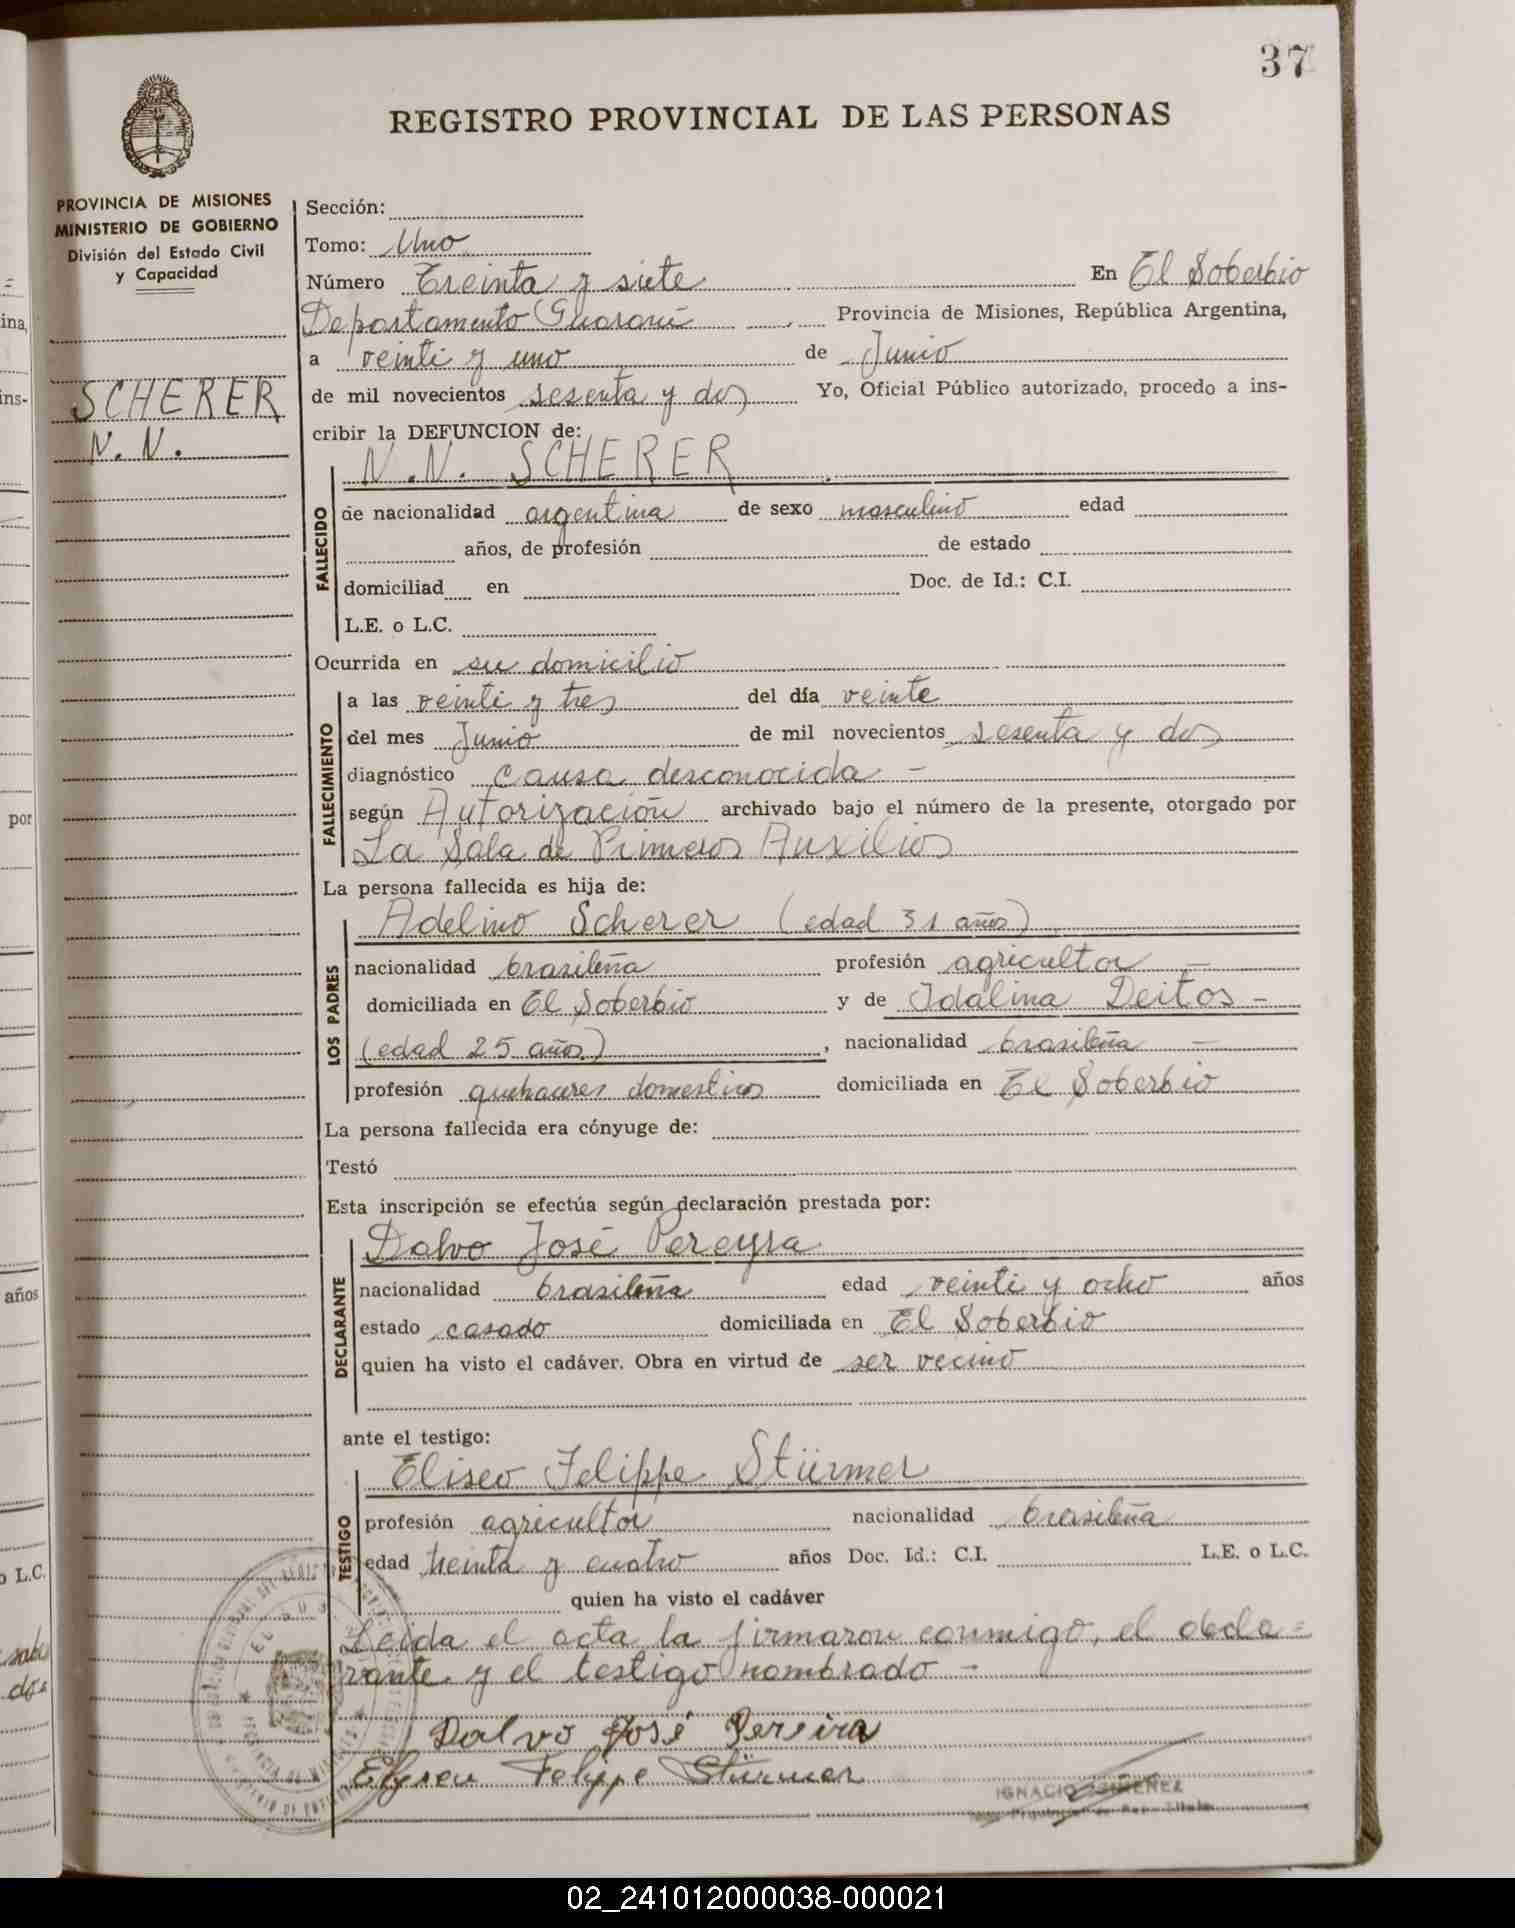 37
REGISTRO PROVINCIAL DE LAS PERSONAS
PROVINCIA DE MISIONES
MINISTERIO DE GOBIERNO
División del Estado Civil
y Capacidad
SCHERER
N. N.
Sección:
Tomo: Uno
Número Treinta y siete En El Soberbio
Departamento Guaraní Provincia de Misiones, República Argentina,
a veinti y uno de Junio
de mil novecientos sesenta y dos Yo, Oficial Público autorizado, procedo a ins-
cribir la DEFUNCION de:
N. N. SCHERER
FALLECIDO
de nacionalidad argentina de sexo masculino edad
años, de profesión de estado
domiciliad en Doc. de Id.: C.I.
L.E. o L.C.
Ocurrida en su domicilio
FALLECIMIENTO
a las veinti y tres del día veinte
del mes Junio de mil novecientos sesenta y dos
diagnóstico causa desconocida -
según Autorización archivado bajo el número de la presente, otorgado por
La Sala de Primeros Auxilios
La persona fallecida es hija de:
LOS PADRES
Adelino Scherer (edad 31 años)
nacionalidad brasileña profesión agricultor -
domiciliada en El Soberbio y de Idalina Deitos -
(edad 25 años) , nacionalidad brasileña -
profesión quehaceres domesticos domiciliada en El Soberbio
La persona fallecida era cónyuge de:
Testó
Esta inscripción se efectúa según declaración prestada por:
DECLARANTE
Dalvo José Pereyra
nacionalidad brasileña edad veinti y ocho años
estado casado domiciliada en El Soberbio
quien ha visto el cadáver. Obra en virtud de ser vecino
ante el testigo:
TESTIGO
Eliseo Felippe Stürmer
profesión agricultor nacionalidad brasileña
edad treinta y cuatro años Doc. Id.: C.I. L.E. o L.C.
quien ha visto el cadáver
Leida el acta la firmaron conmigo, el decla=
rante y el testigo nombrado -
Dalvo José Pereira
Elyseu Felippe Stürmer
IGNACIO GIMENEZ
ina,
ins-
por
años
o L.C.
02_241012000038-000021